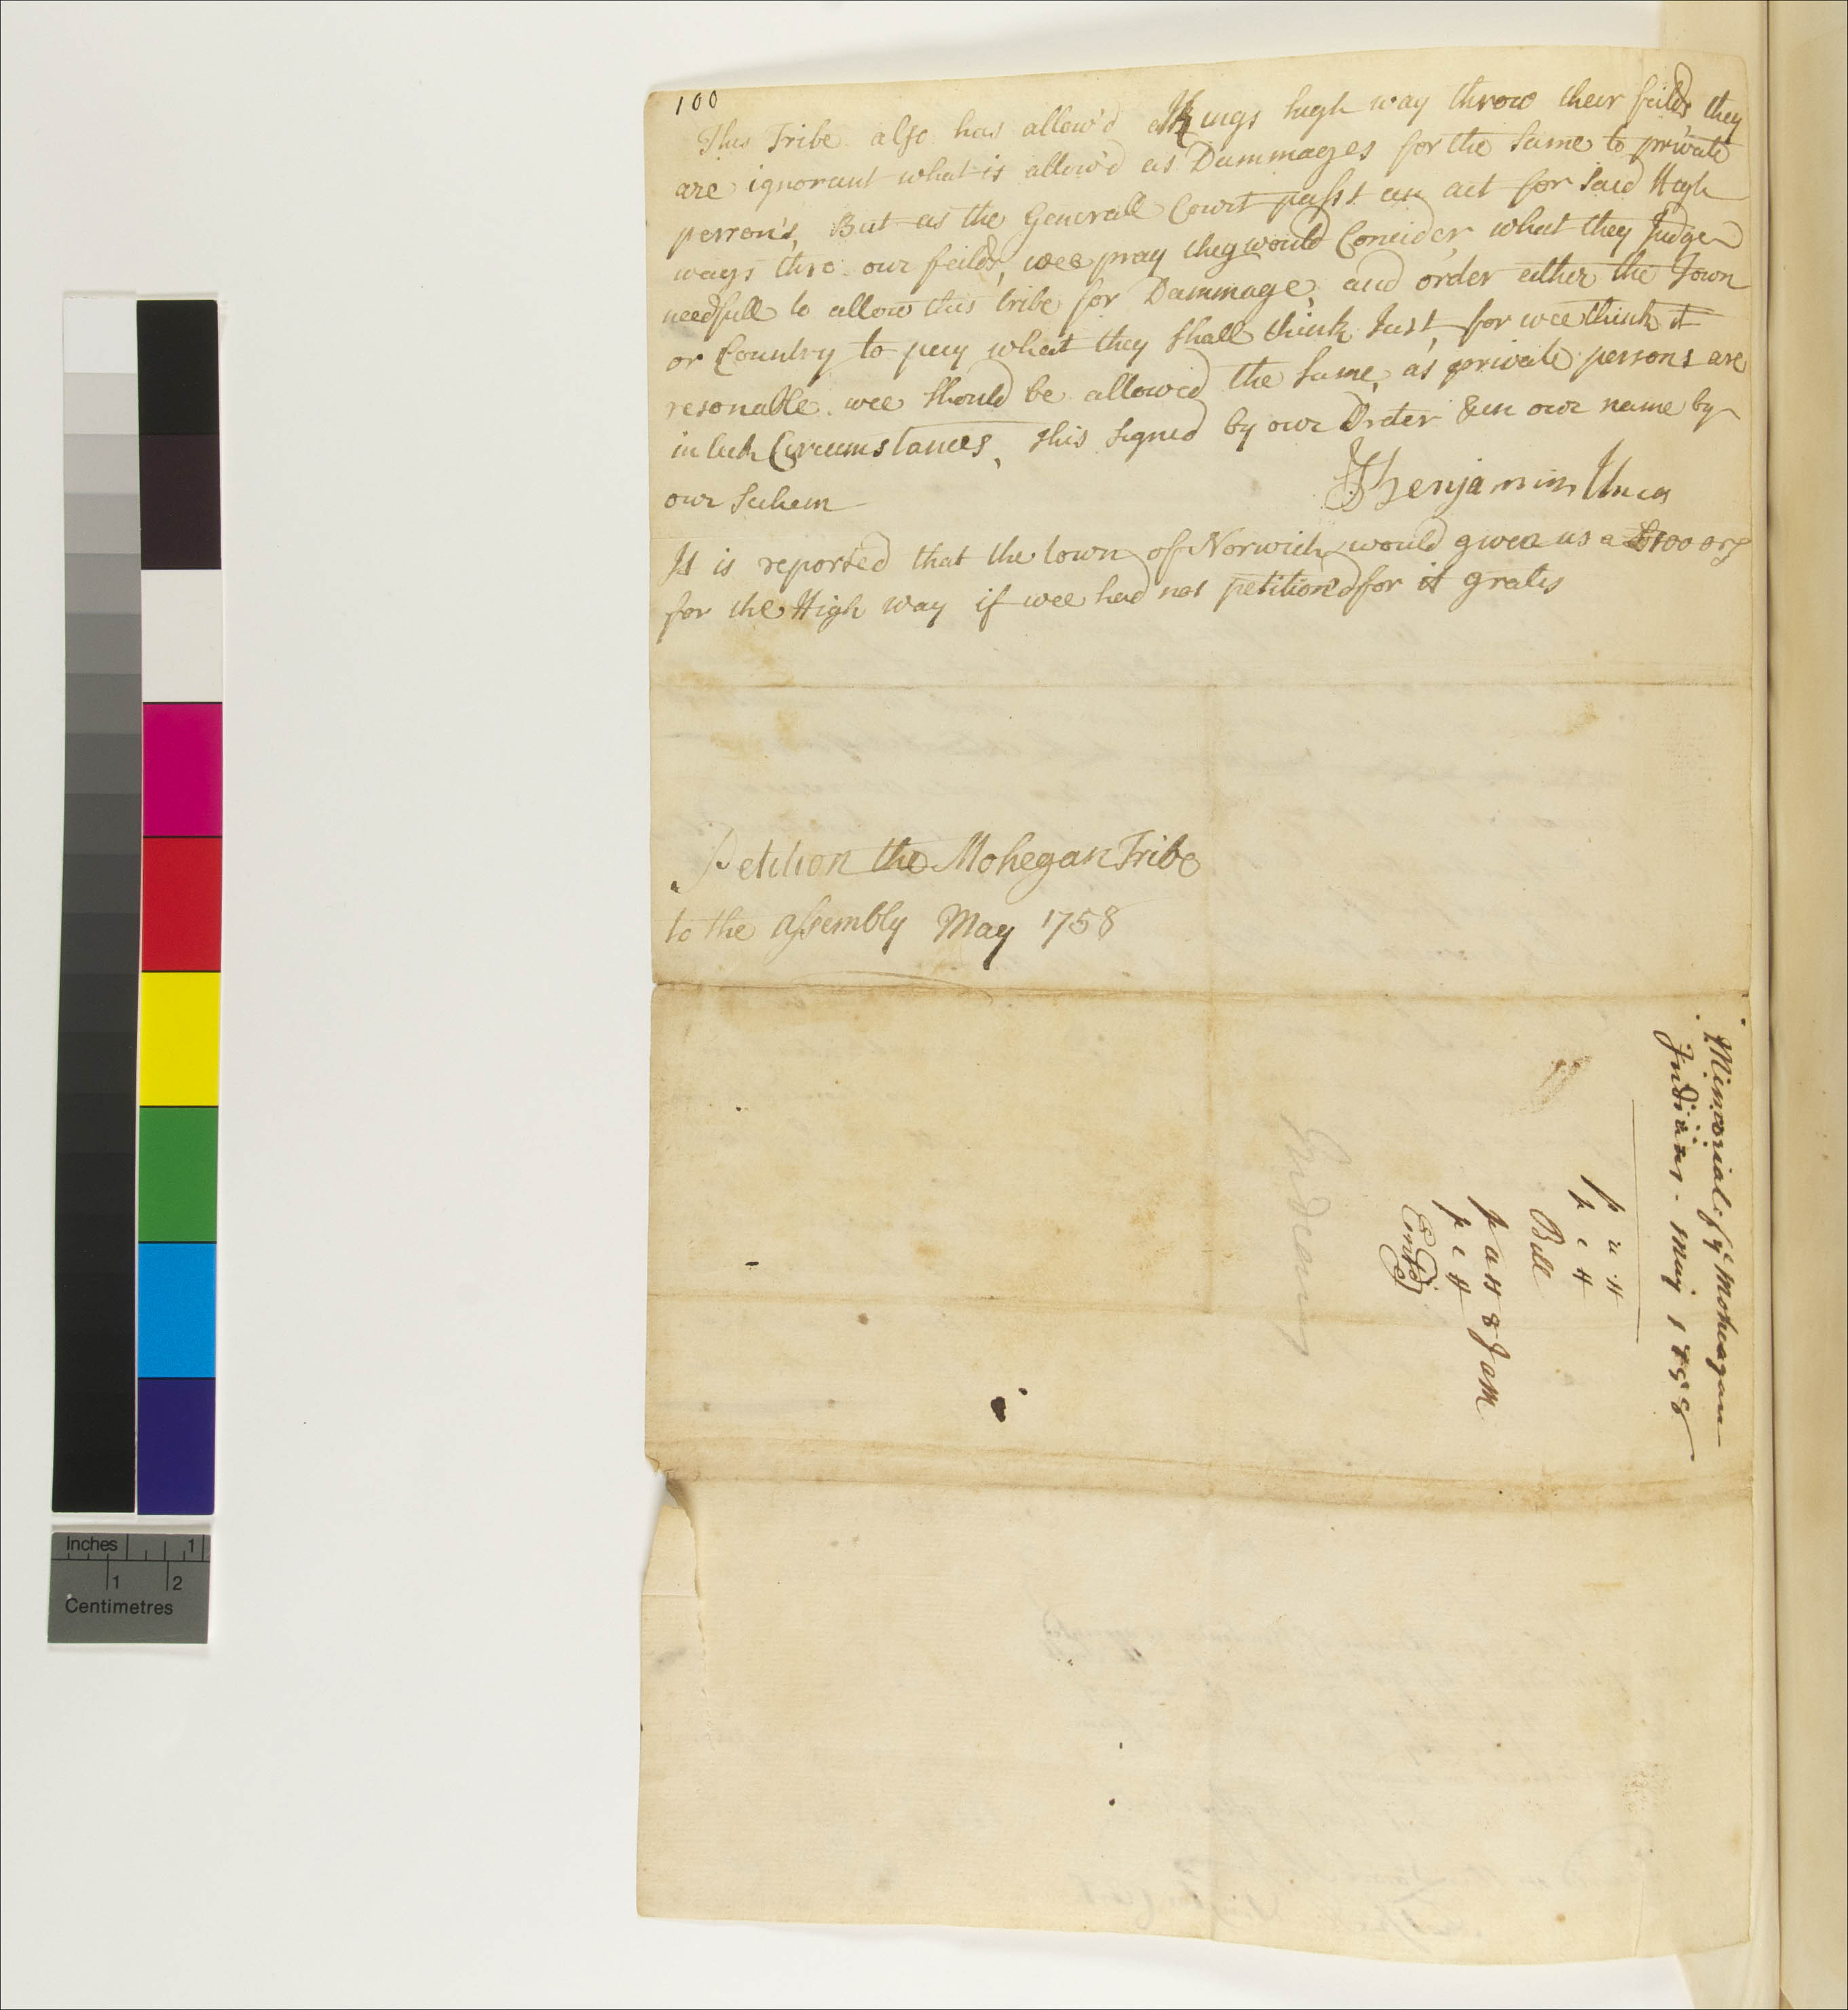 100
This Tribe also has allow'd a Kings high way throw their feilds they
are ignorant what is allow'd as Dammages for the Same to private
perron's, But as the Generall Court passt an act for said High
ways thro our feilds, wee pray they would Concider what they Judge
needfull to allow this tribe for Dammage, and order either the Town
or Country to pay what they Shall think Just, for wee think it
resonable wee Should be allowed the Same, as private persons are
in such Circumstances, this Signed by our Order & in our name by
our Sachem
Benjamin Uncas
It is reported that the town of Norwich would given us a £100
for the High way if wee had not petitiond for it gratis
Petition the Mohegan Tribe
to the assembly May 1758
Memorial of ye Moheagan
Indians - May 1758
p u H
p l H
Bill
pass
p l H
Entd
Indeans
Inches 1
1 2
Centimetres